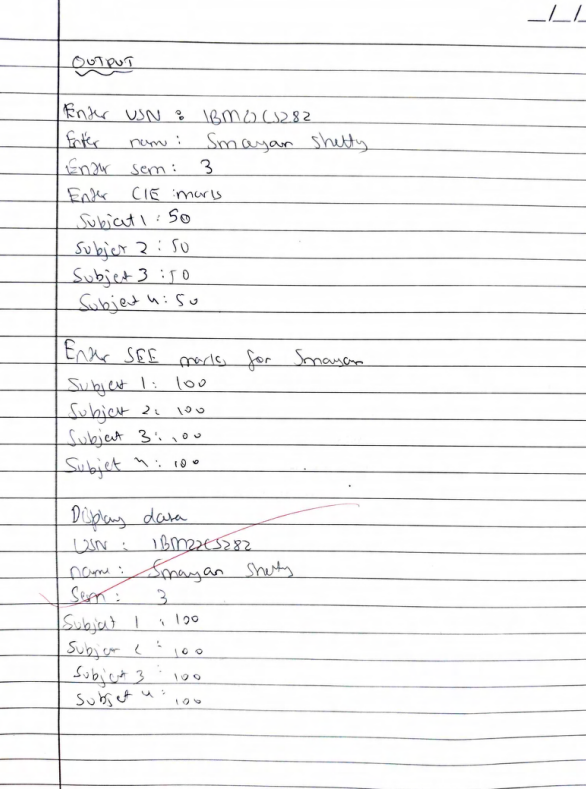 _/_/_
OUTPUT
Enter USN : 1BM22CS282
Enter name : Smayan Shetty
Enter sem : 3
Enter CIE marks
Subject 1 : 50
Subject 2 : 50
Subject 3 : 50
Subject 4 : 50
Enter SEE marks for Smayan
Subject 1 : 100
Subject 2 : 100
Subject 3 : 100
Subject 4 : 100
Display data
USN : 1BM22CS282
name : Smayan Shetty
Sem : 3
Subject 1 : 100
Subject 2 : 100
Subject 3 : 100
Subject 4 : 100